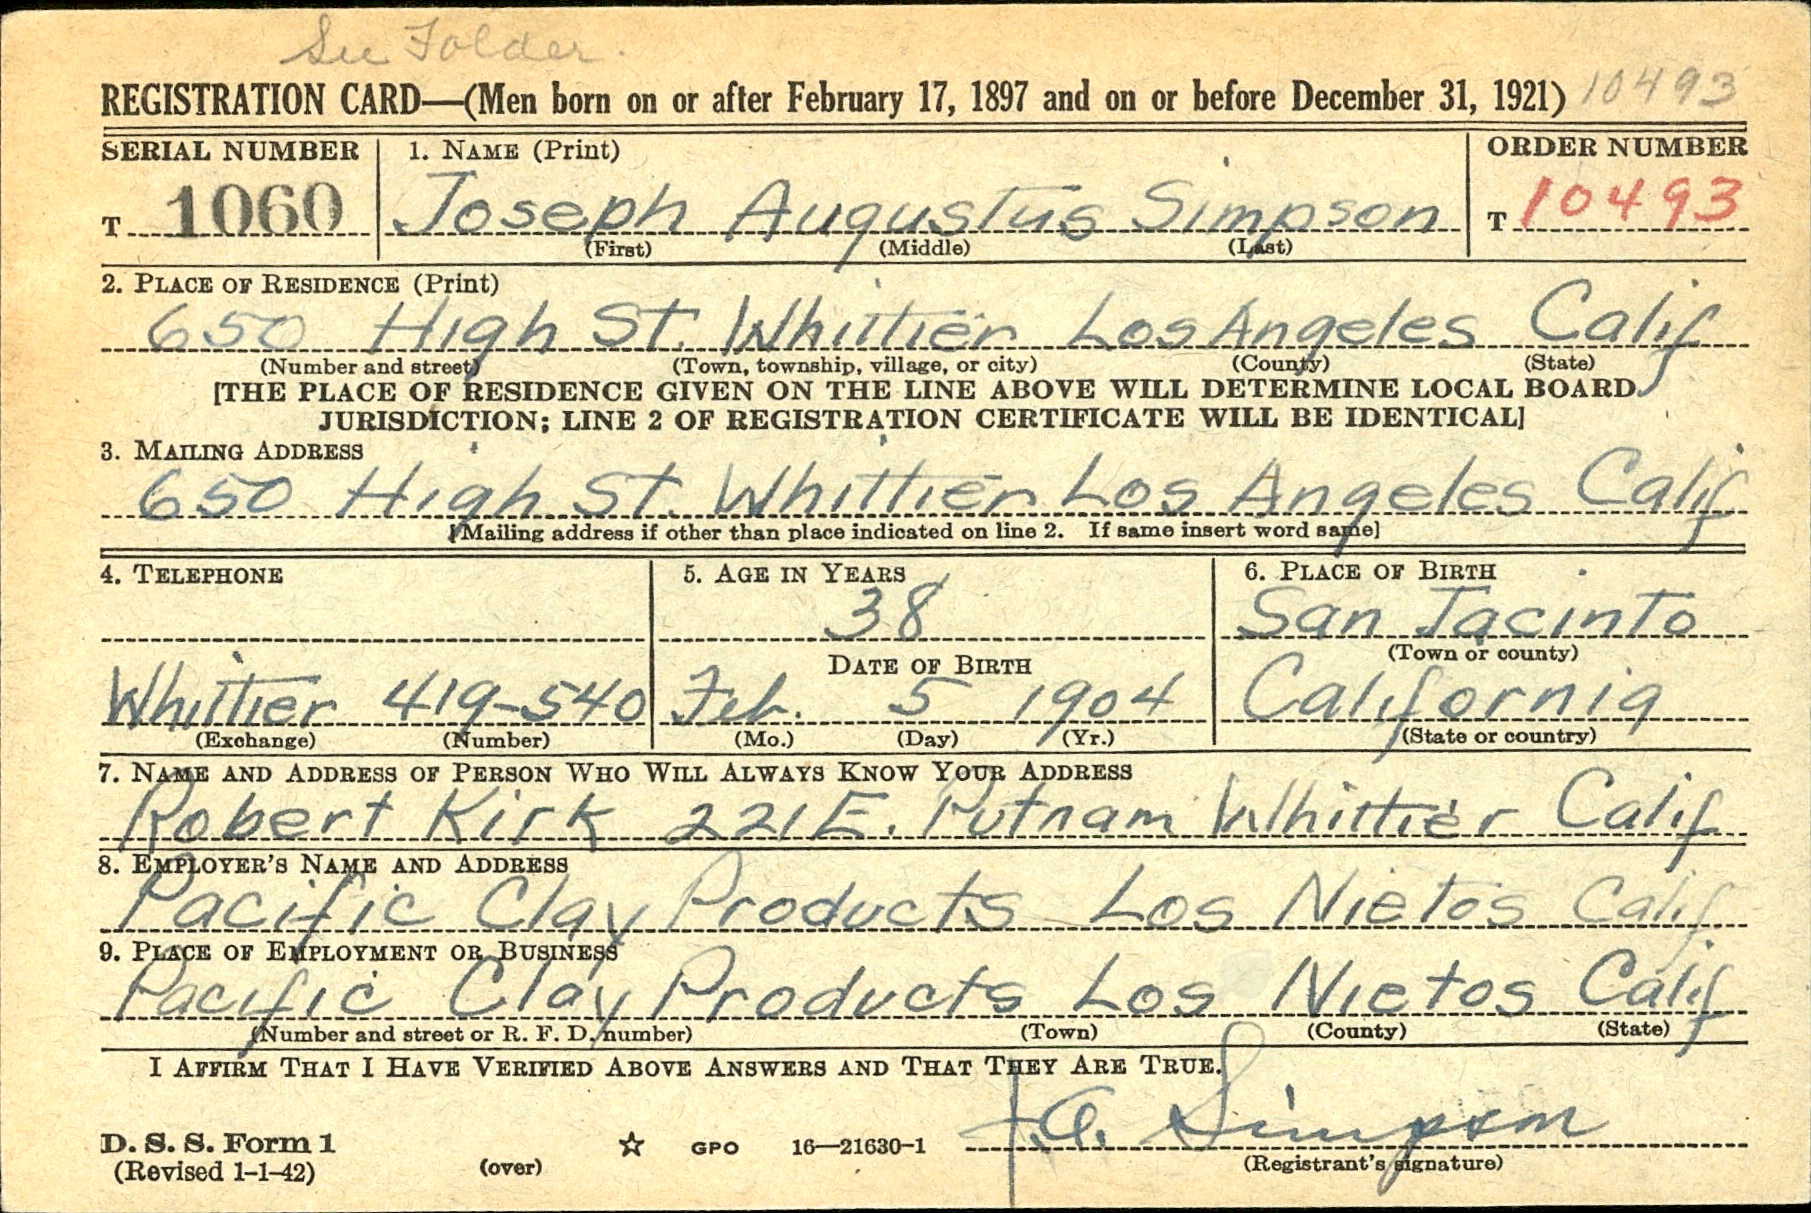 See Folder.
REGISTRATION CARD—(Men born on or after February 17, 1897 and on or before December 31, 1921) 10493
SERIAL NUMBER 1. NAME (Print) ORDER NUMBER
T 1060 Joseph Augustus Simpson T 10493
(First) (Middle) (Last)
2. PLACE OF RESIDENCE (Print)
650 High St. Whittier Los Angeles Calif
(Number and street) (Town, township, village, or city) (County) (State)
[THE PLACE OF RESIDENCE GIVEN ON THE LINE ABOVE WILL DETERMINE LOCAL BOARD
JURISDICTION; LINE 2 OF REGISTRATION CERTIFICATE WILL BE IDENTICAL]
3. MAILING ADDRESS
650 High St. Whittier Los Angeles Calif
[Mailing address if other than place indicated on line 2. If same insert word same]
4. TELEPHONE 5. AGE IN YEARS 6. PLACE OF BIRTH
38 San Jacinto
DATE OF BIRTH (Town or county)
Whittier 419-540 Feb. 5 1904 California
(Exchange) (Number) (Mo.) (Day) (Yr.) (State or country)
7. NAME AND ADDRESS OF PERSON WHO WILL ALWAYS KNOW YOUR ADDRESS
Robert Kirk 221 E. Putnam Whittier Calif
8. EMPLOYER'S NAME AND ADDRESS
Pacific Clay Products Los Nietos Calif
9. PLACE OF EMPLOYMENT OR BUSINESS
Pacific Clay Products Los Nietos Calif
(Number and street or R. F. D. number) (Town) (County) (State)
I AFFIRM THAT I HAVE VERIFIED ABOVE ANSWERS AND THAT THEY ARE TRUE.
J.A. Simpson
D. S. S. Form 1 GPO 16—21630-1
(Revised 1-1-42) (over) (Registrant's signature)